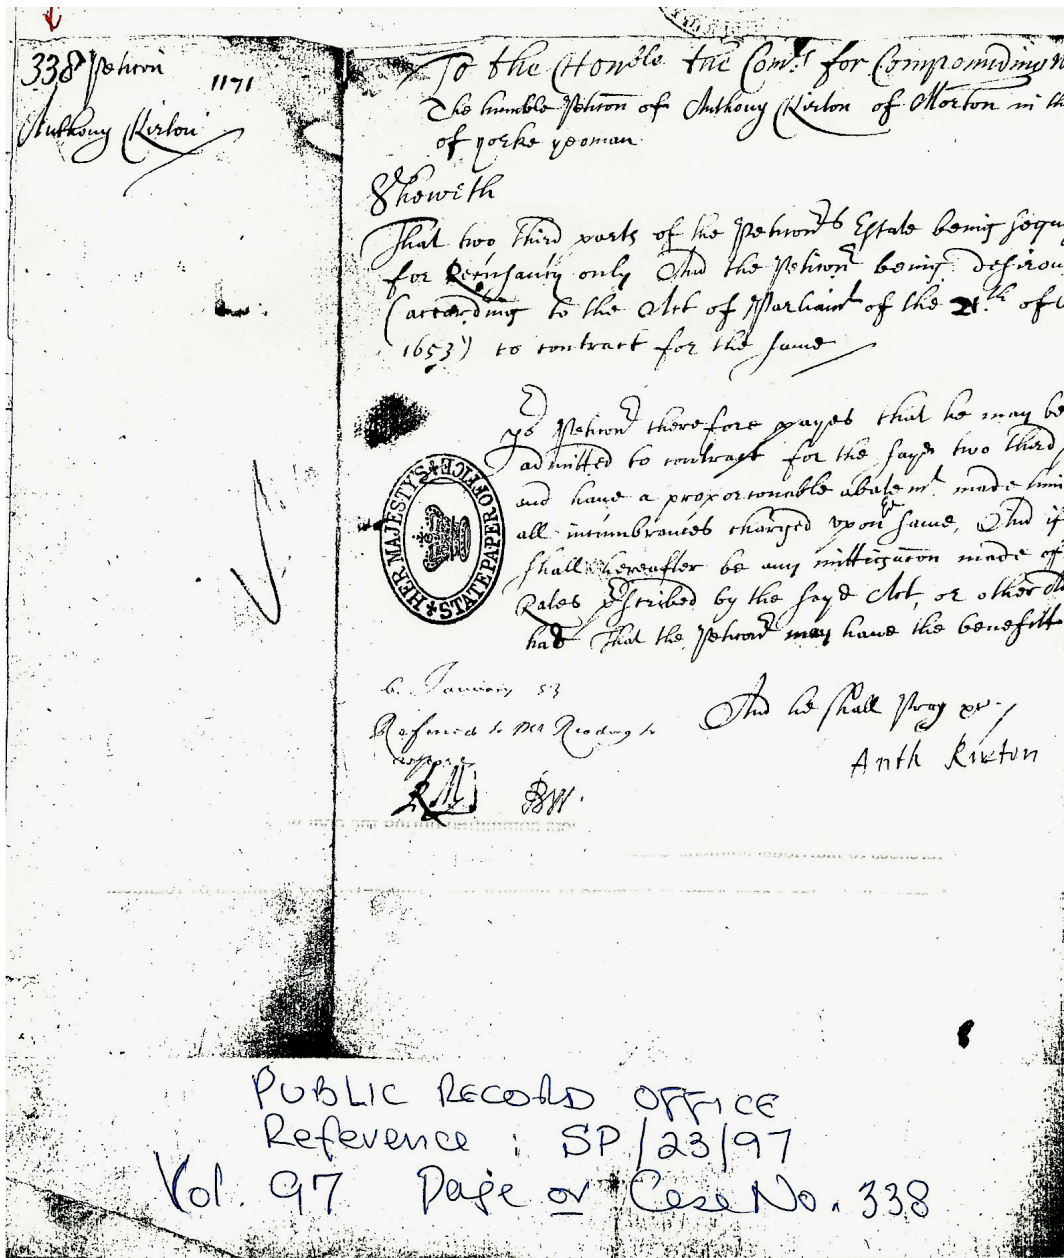 338 Peticon
1171
Anthony Kirton
To the Honble the Comrs for Compounding
The humble Peticon of Anthony Kirton of Morton in th
of yorke yeoman
Sheweth
That two third parts of the Peticonrs Estate being sequ
for Recusancy only And the Peticonr being desirou
(according to the Act of Parliamt of the 21th of
1653) to contract for the same
yor Peticonr therefore prayes that he may be
admitted to contract for the sayd two third
and have a proporconable abatemt made
all incumbrances charged upon ye same, And if
shall hereafter be any mittigacon made of
Rates pscribed by the sayd Act, or other
had That the Peticonr may have the benefitt
And he shall Pray &c.
Anth Kirton
6. January 53
Referred to Mr Reading to
RM BW.
HER MAJESTY'S STATE PAPER OFFICE
PUBLIC RECORD OFFICE
Reference : SP/23/97
Vol. 97 Page or Case No. 338